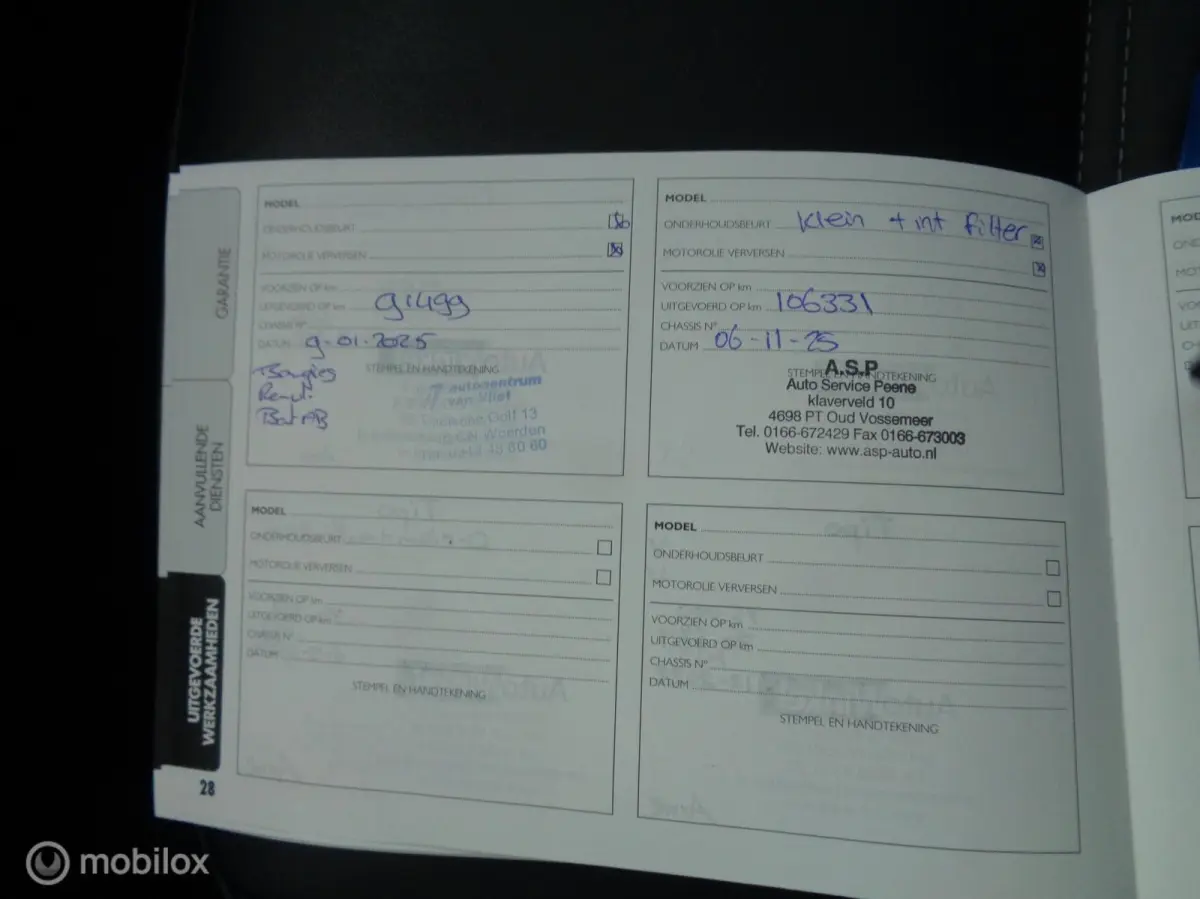 GARANTIE
AANVULLENDE
DIENSTEN
UITGEVOERDE
WERKZAAMHEDEN
28
MODEL
ONDERHOUDSBEURT
MOTOROLIE VERVERSEN
VOORZIEN OP km
UITGEVOERD OP km 91499
CHASSIS N°
DATUM 9-01-2025
STEMPEL EN HANDTEKENING
Bougies
autocentrum
van Vliet
MODEL
ONDERHOUDSBEURT Klein + int filter
MOTOROLIE VERVERSEN
VOORZIEN OP km
UITGEVOERD OP km 106331
CHASSIS N°
DATUM 06-11-25
STEMPEL EN HANDTEKENING
A.S.P
Auto Service Peene
klaverveld 10
4698 PT Oud Vossemeer
Tel. 0166-672429 Fax 0166-673003
Website: www.asp-auto.nl
MODEL
ONDERHOUDSBEURT
MOTOROLIE VERVERSEN
VOORZIEN OP km
UITGEVOERD OP km
CHASSIS N°
DATUM
STEMPEL EN HANDTEKENING
MODEL
ONDERHOUDSBEURT
MOTOROLIE VERVERSEN
VOORZIEN OP km
UITGEVOERD OP km
CHASSIS N°
DATUM
STEMPEL EN HANDTEKENING
mobilox